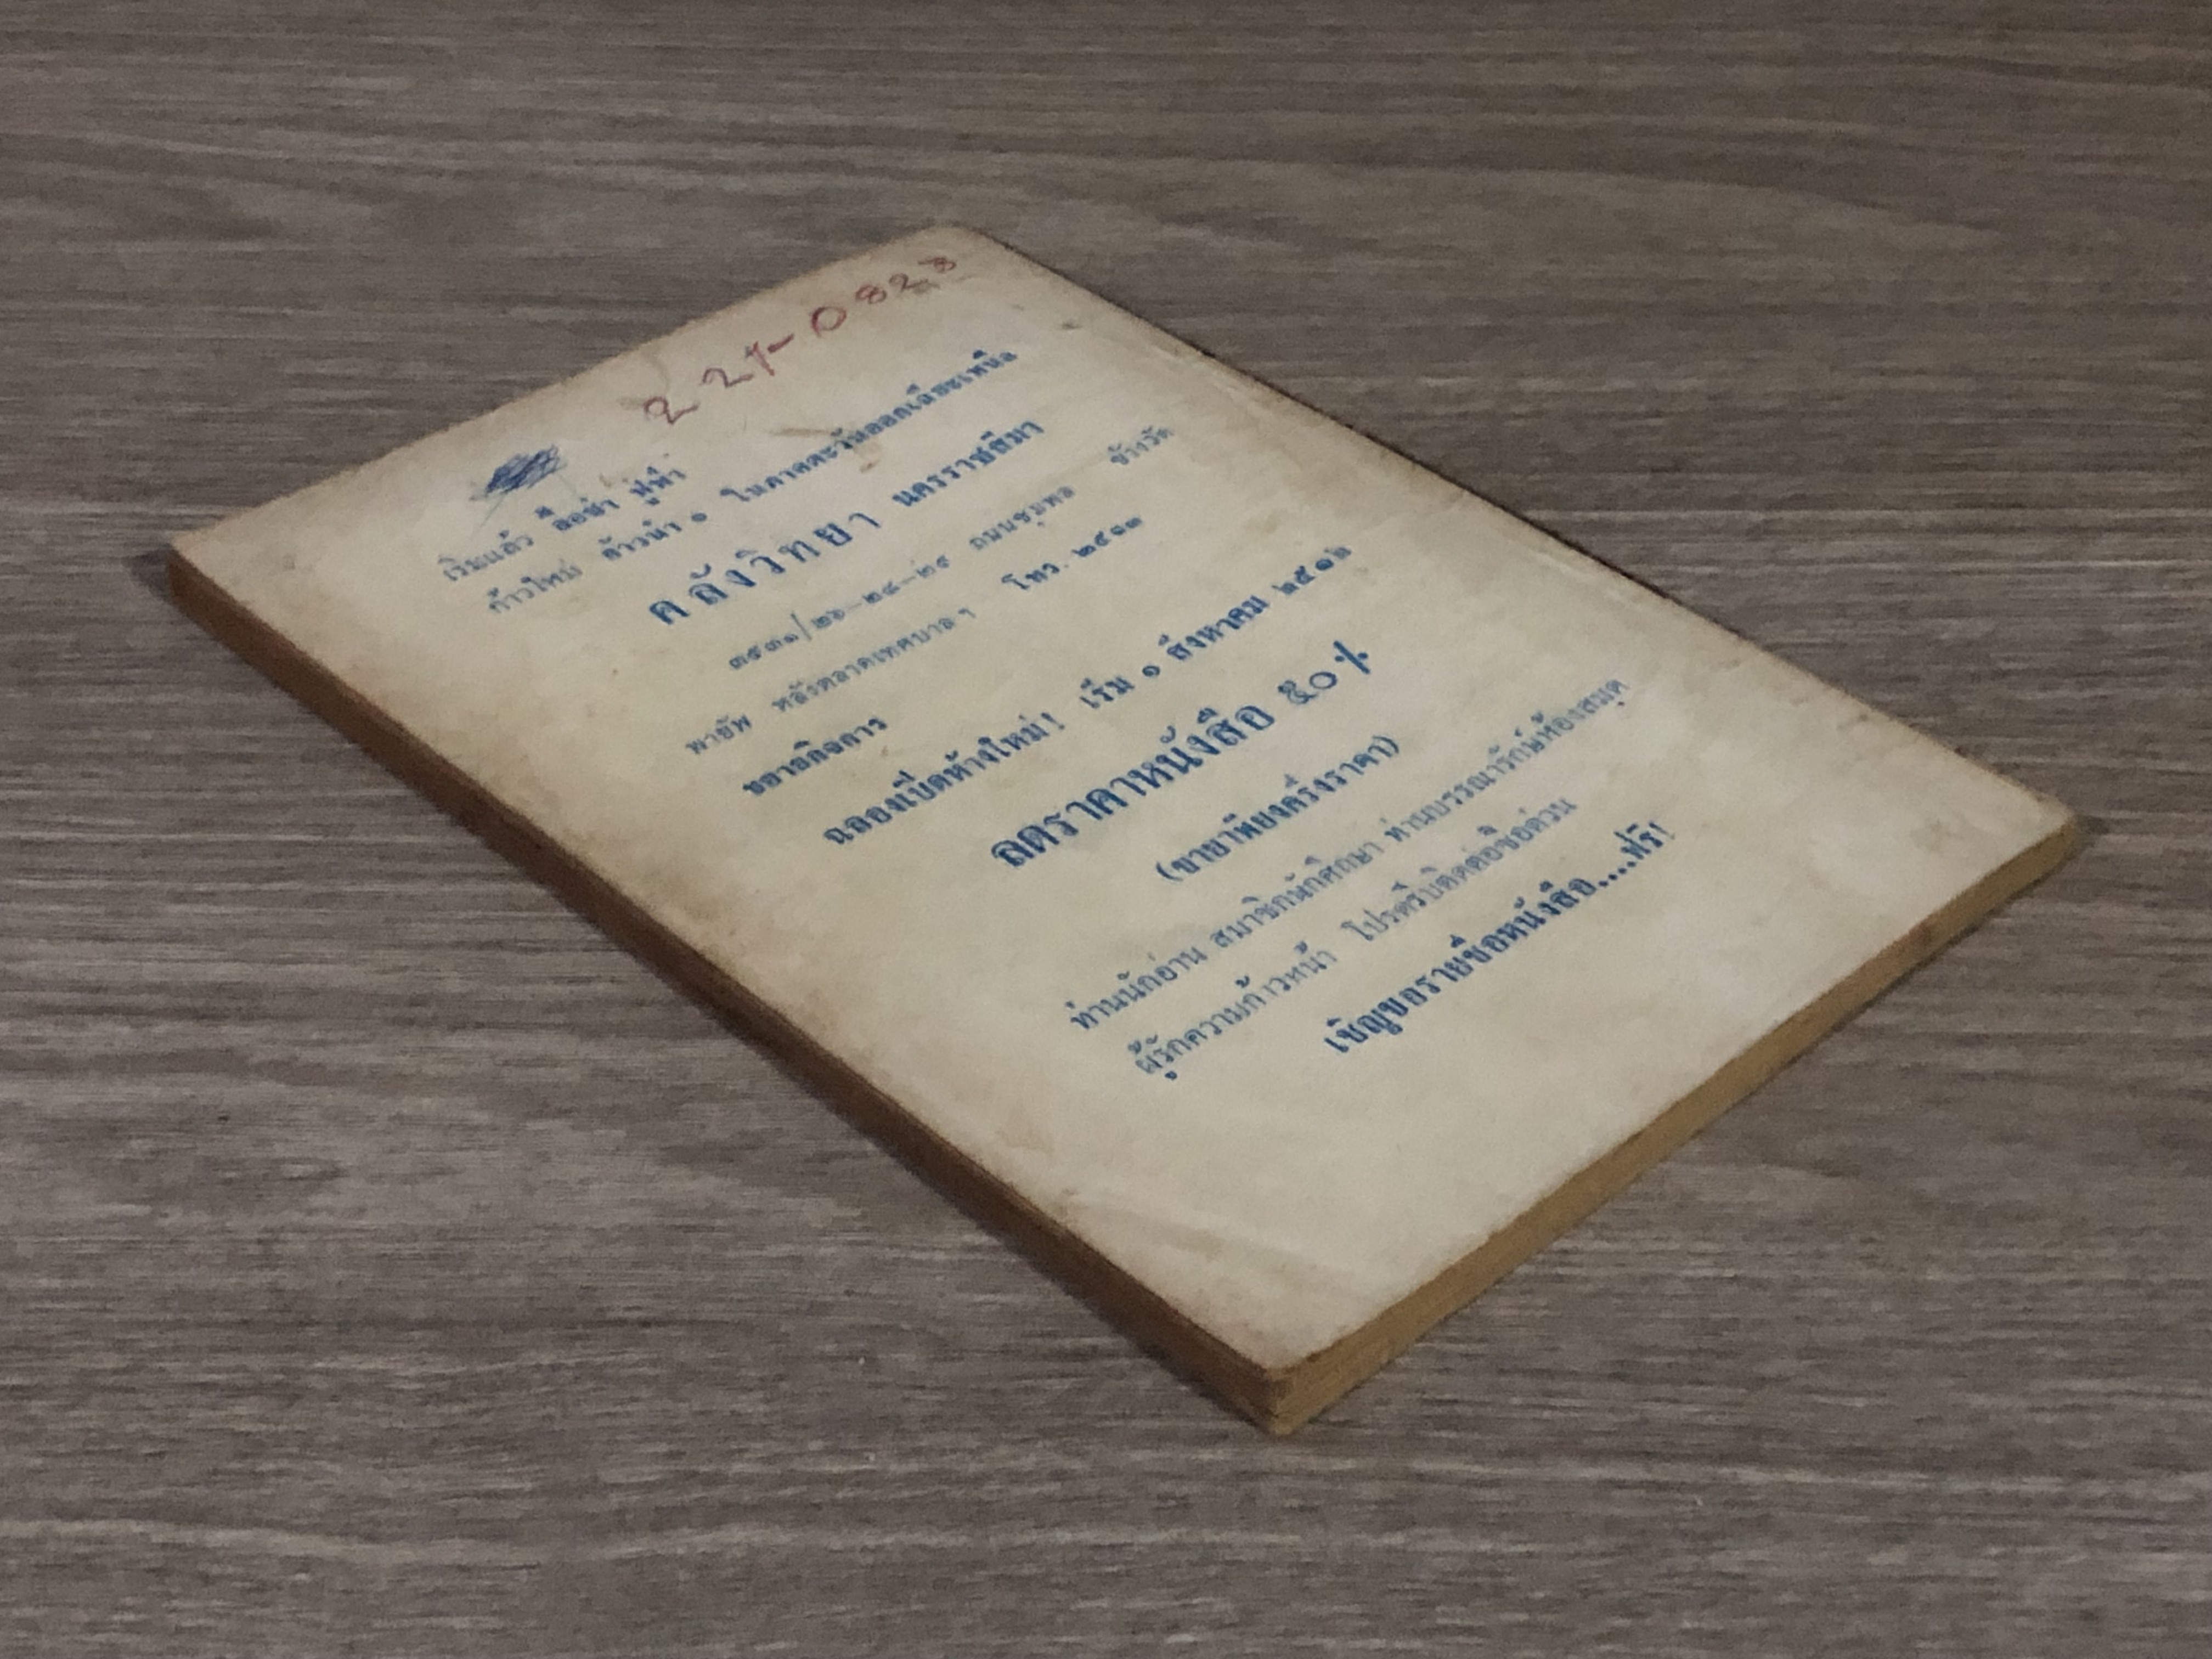 2 21-0823
เริ่มแล้ว ลือฟ้า ฟูฟ้า
ก้าวใหม่ ก้าวนำ ๑ ในภาคตะวันออกเฉียงเหนือ
คลังวิทยา นครราชสีมา
๓๙๓๑/๒๖-๒๘-๒๙ ถนนชุมพล ข้างวัด
พายัพ หลังตลาดเทศบาลฯ โทร. ๒๔๓๓
ขยายกิจการ
ฉลองเปิดห้างใหม่! เริ่ม ๑ สิงหาคม ๒๕๑๖
ลดราคาหนังสือ ๕๐ %
(ขายเพียงครึ่งราคา)
ท่านนักอ่าน สมาชิกนักศึกษา ท่านบรรณารักษ์ห้องสมุด
ผู้รักความก้าวหน้า โปรดรีบติดต่อซื้อด่วน
เชิญขอรายชื่อหนังสือ....ฟรี!